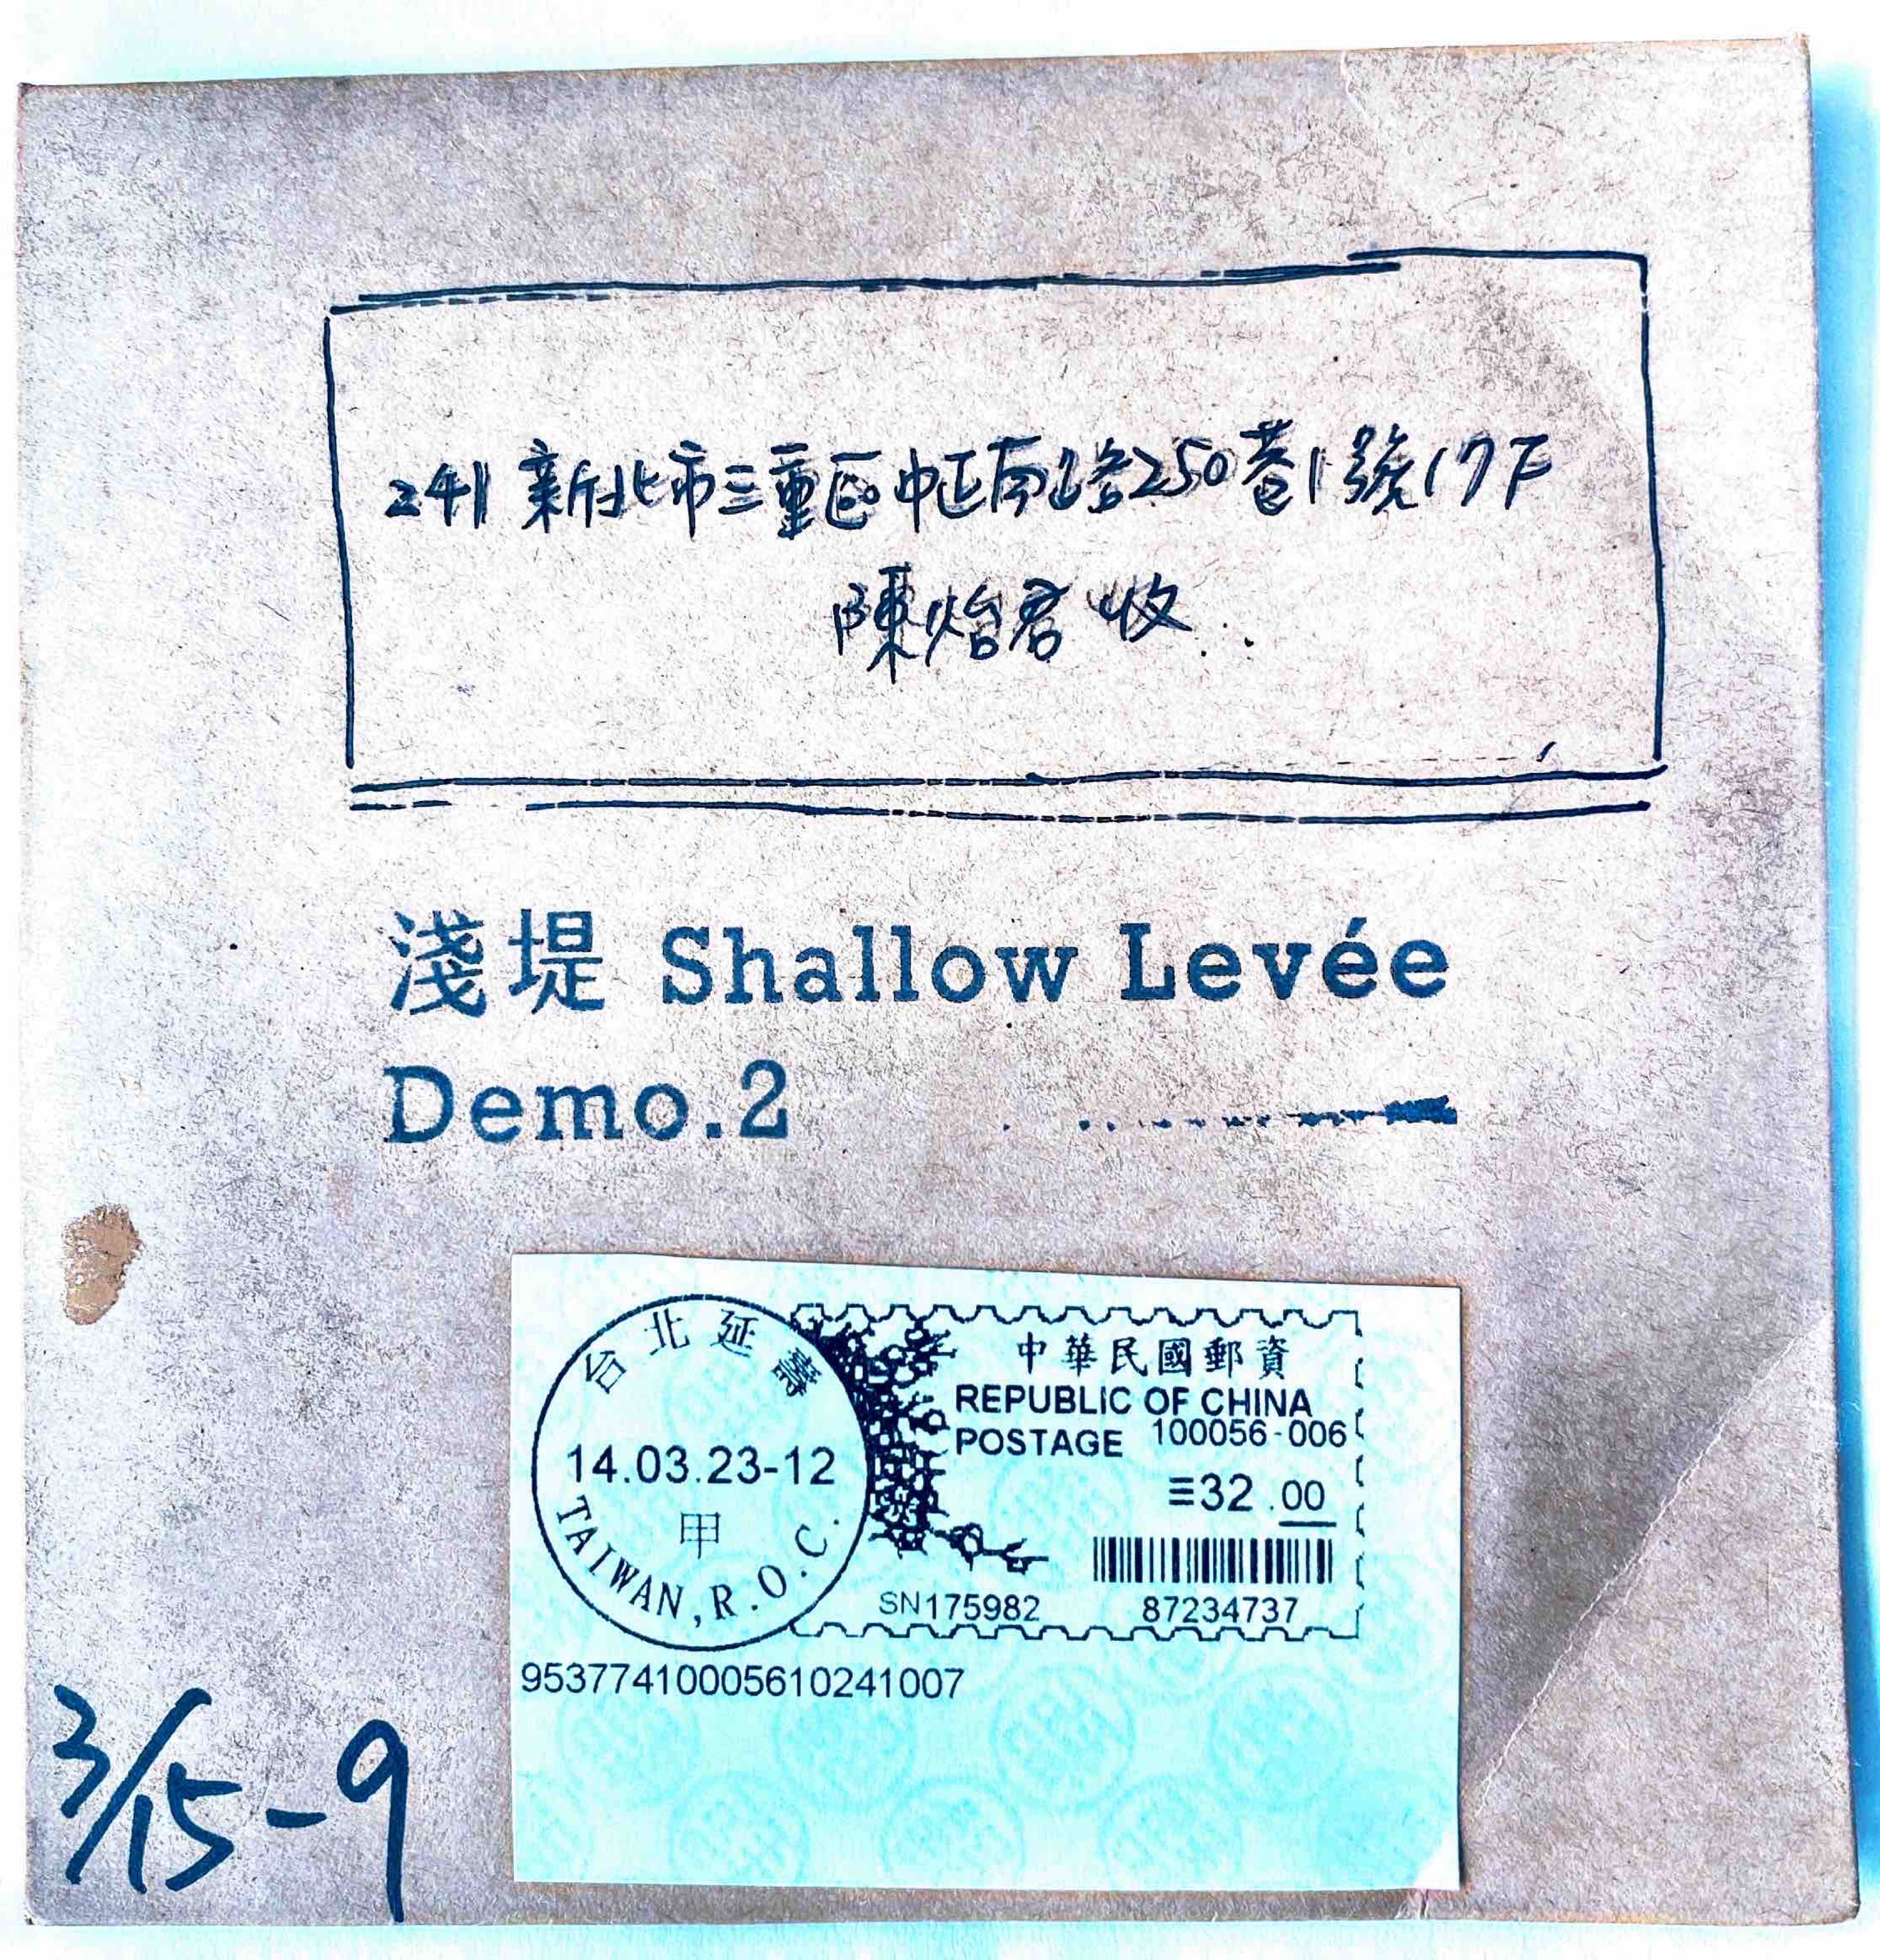 241 新北市三重區中正南路250巷1號17F
陳怡君 收
淺堤 Shallow Levée
Demo.2
台北延壽
14.03.23-12
甲
TAIWAN, R.O.C.
中華民國郵資
REPUBLIC OF CHINA
POSTAGE 100056-006
≡32.00
SN175982 87234737
95377410005610241007
3/15-9